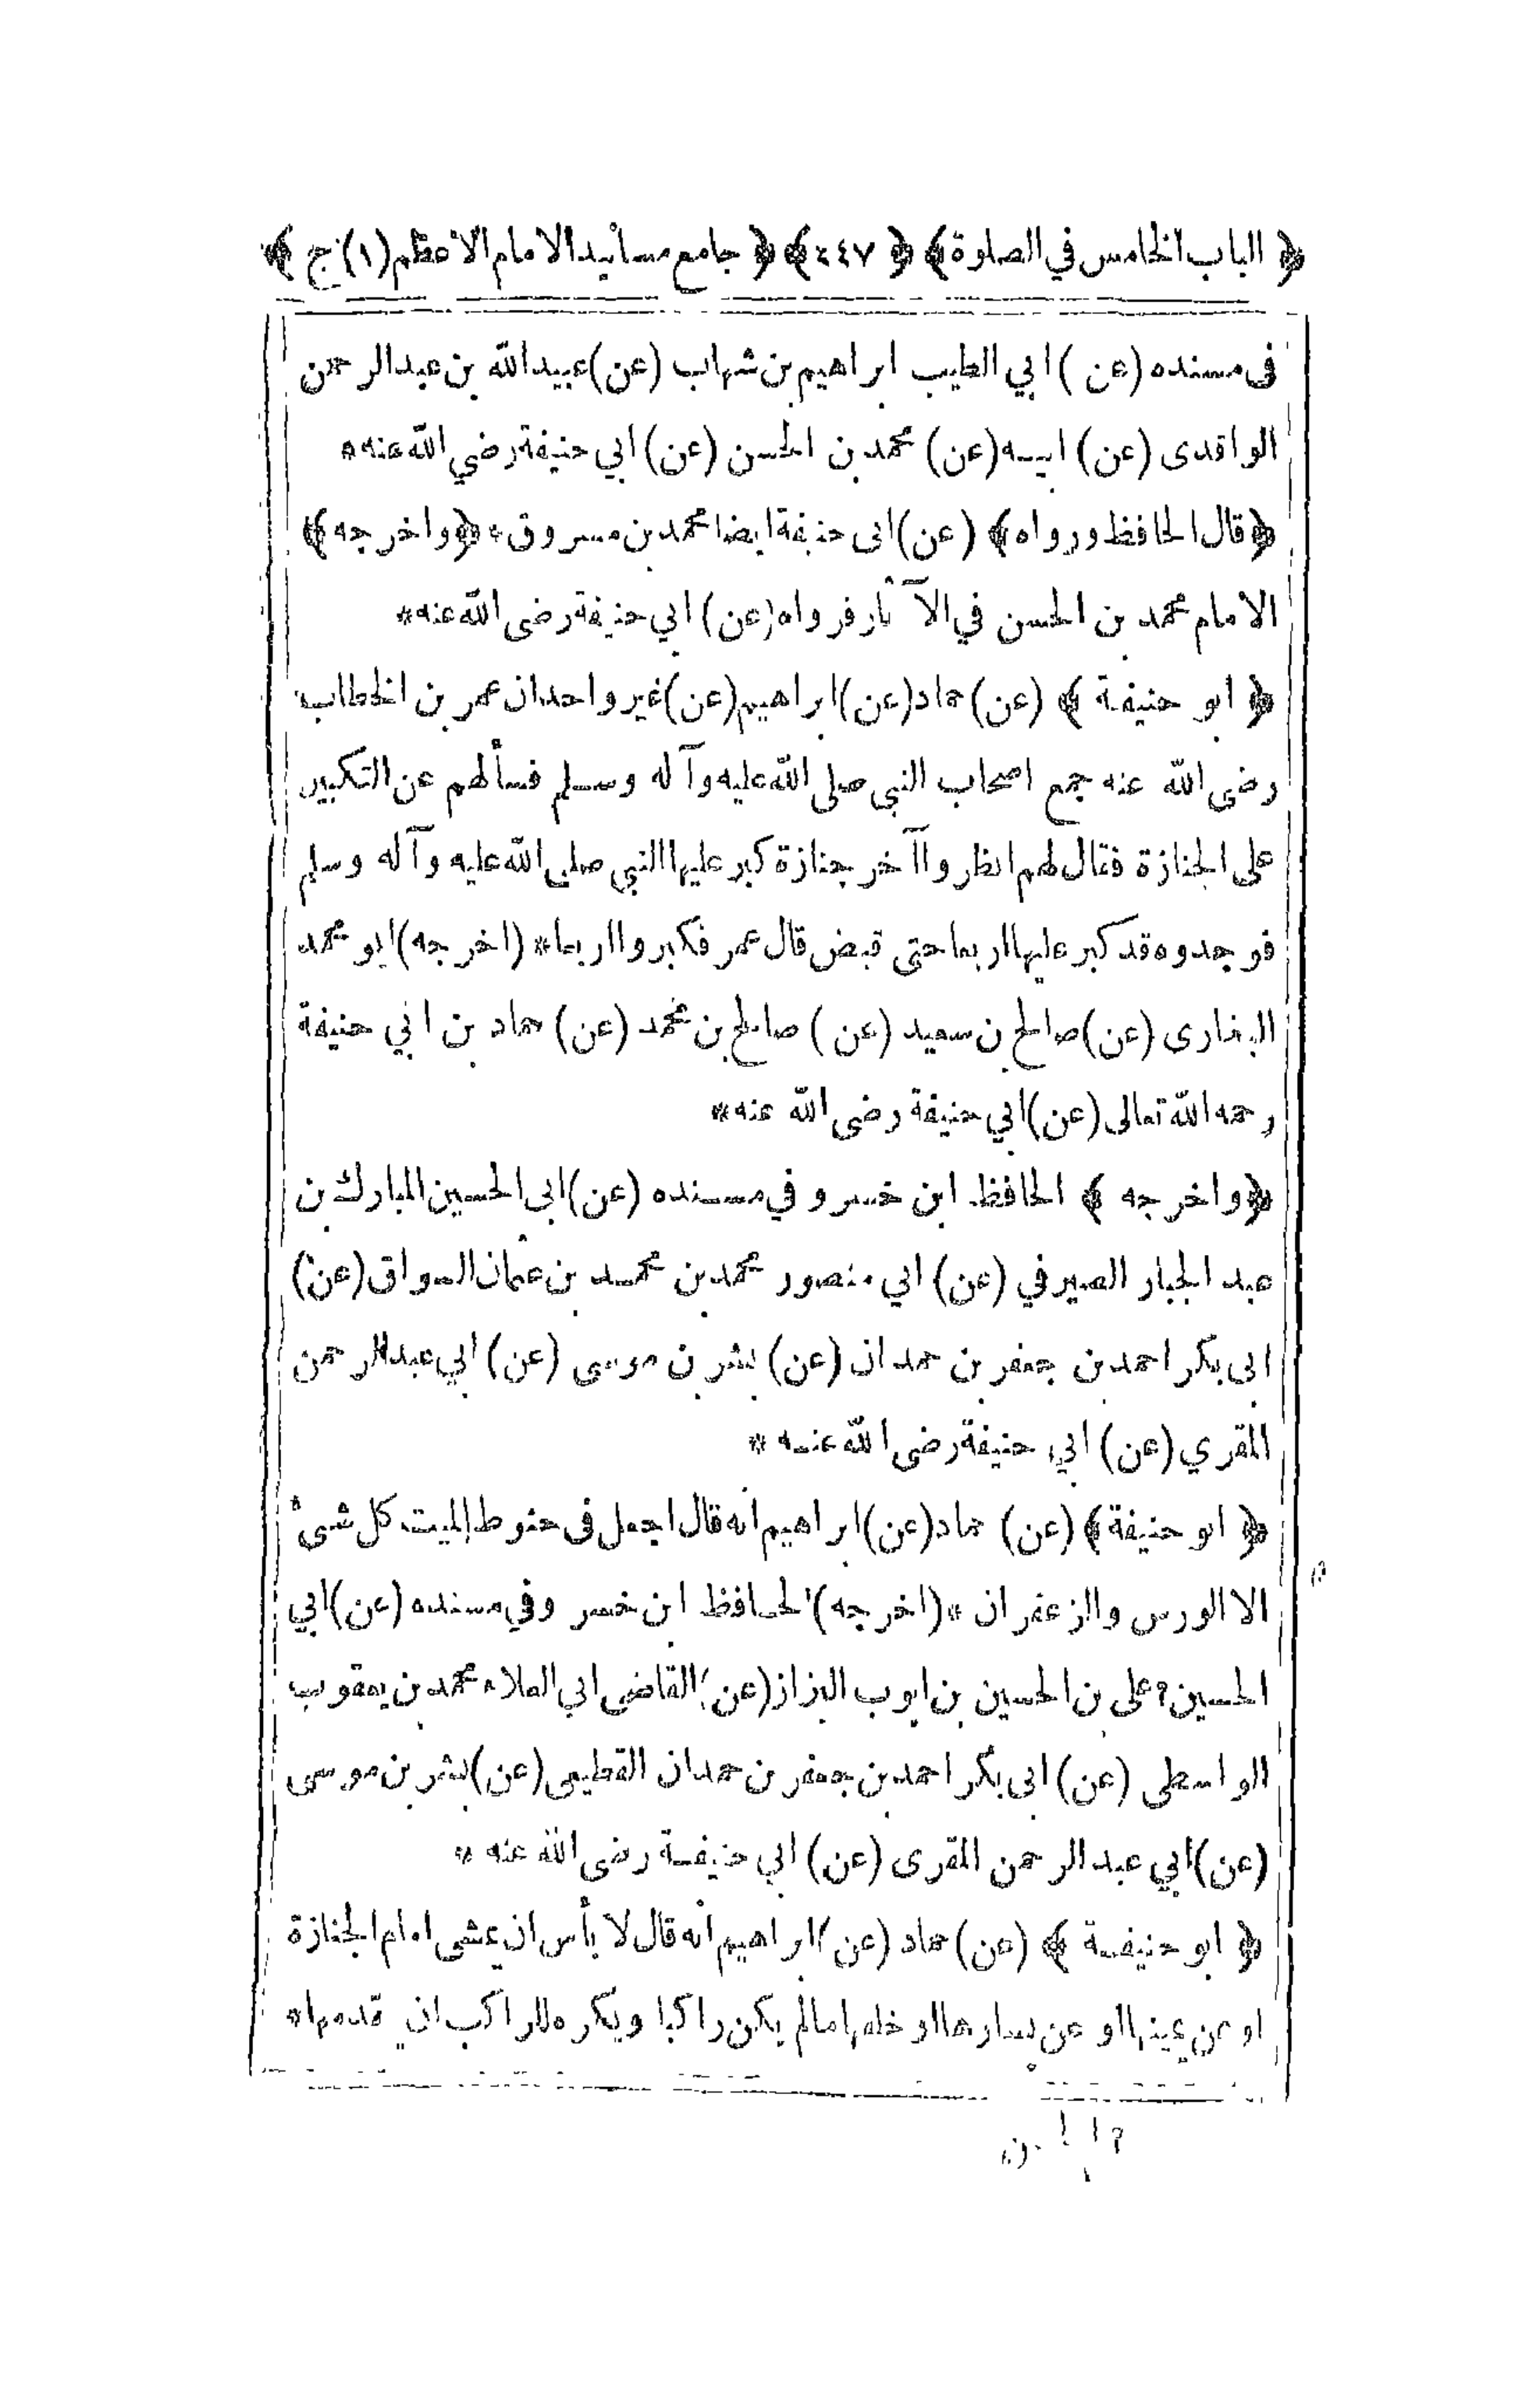 ﴿ الباب الخامس في الصلوة ﴾ ﴿ ٤٤٧ ﴾ ﴿ جامع مسانيد الامام الاعظم (١) ج ﴾
فى مسنده (عن) ابي الطيب ابراهيم بن شهاب (عن) عبيد الله بن عبد الرحمن
الواقدى (عن) ابيه (عن) محمد بن الحسن (عن) ابي حنيفة رضي الله عنه *
﴿ قال الحافظ ورواه ﴾ (عن) ابى حنيفة ايضا محمد بن مسروق * ﴿ واخرجه ﴾
الامام محمد بن الحسن في الآثار فرواه (عن) ابي حنيفة رضى الله عنه *
﴿ ابو حنيفة ﴾ (عن) حماد (عن) ابراهيم (عن) غير واحد ان عمر بن الخطاب
رضى الله عنه جمع اصحاب النبي صلى الله عليه وآله وسلم فسألهم عن التكبير
على الجنازة فقال لهم انظروا آخر جنازة كبر عليها النبي صلى الله عليه وآله وسلم
فوجدوه قد كبر عليها اربعا حتى قبض قال عمر فكبروا اربعا * (اخرجه) ابو محمد
البخارى (عن) صالح بن سعيد (عن) صالح بن محمد (عن) حماد بن ابي حنيفة
رحمه الله تعالى (عن) ابي حنيفة رضى الله عنه *
﴿ واخرجه ﴾ الحافظ ابن خسرو في مسنده (عن) ابى الحسين المبارك بن
عبد الجبار الصيرفي (عن) ابي منصور محمد بن محمد بن عثمان السواق (عن)
ابى بكر احمد بن جعفر بن حمدان (عن) بشر بن موسى (عن) ابي عبد الرحمن
المقري (عن) ابي حنيفة رضى الله عنه *
﴿ ابو حنيفة ﴾ (عن) حماد (عن) ابراهيم انه قال اجعل فى حنوط الميت كل شىء
الا الورس والزعفران * (اخرجه) الحافظ ابن خسرو في مسنده (عن) ابي
الحسين على بن الحسين بن ايوب البزاز (عن) القاضى ابي العلاء محمد بن يعقوب
الواسطى (عن) ابى بكر احمد بن جعفر بن حمدان القطيعى (عن) بشر بن موسى
(عن) ابي عبد الرحمن المقرى (عن) ابي حنيفة رضى الله عنه *
﴿ ابو حنيفة ﴾ (عن) حماد (عن) ابراهيم انه قال لا بأس ان يمشى امام الجنازة
او عن يمينها او عن يسارها او خلفها ما لم يكن راكبا ويكره للراكب ان يتقدمها *